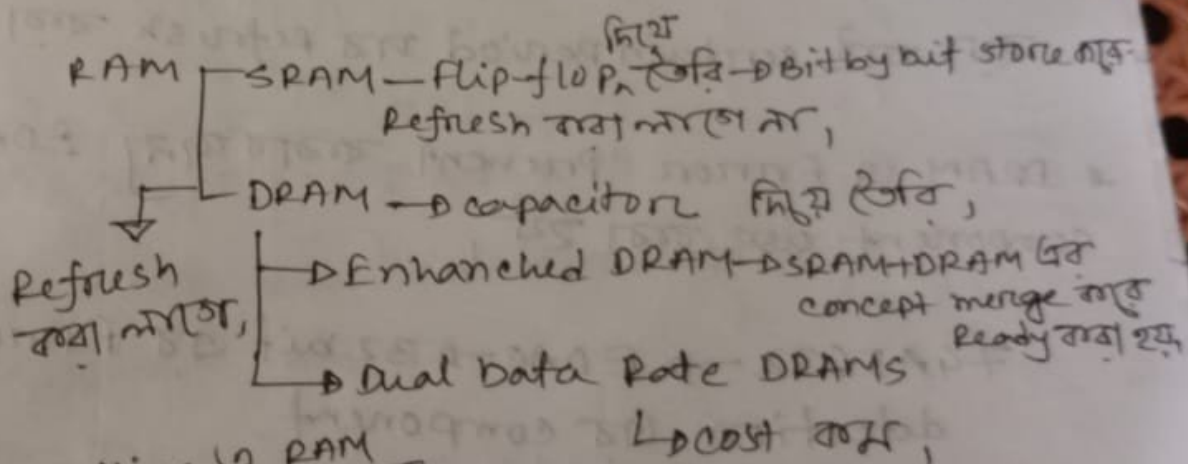 দিয়ে
RAM SRAM - Flip-flop তৈরি → Bit by bit store করে
Refresh করা লাগে না,
DRAM → capacitor দিয়ে তৈরি,
Refresh করা লাগে,
→ Enhanched DRAM → SRAM+DRAM এর
concept merge করে
Ready করা হয়
→ Dual Data Rate DRAMS
→ cost কম,
in RAM